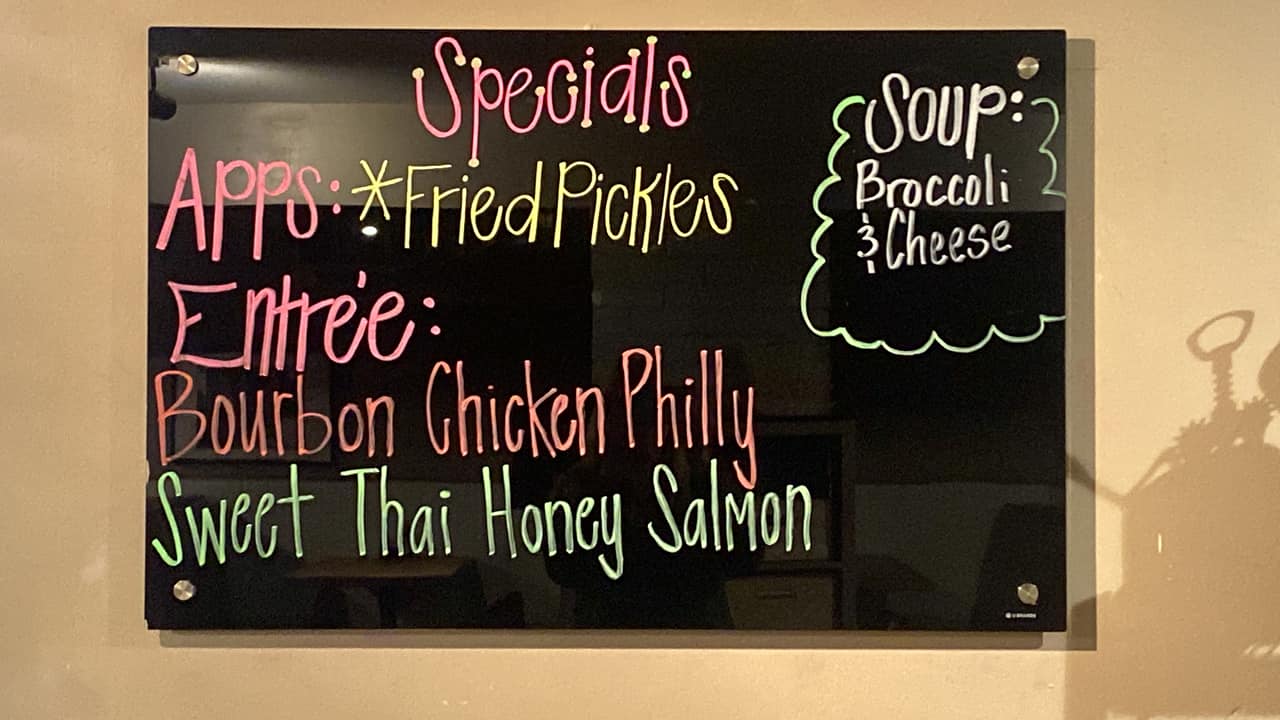 Specials
Apps: *Fried Pickles
Entrée:
Bourbon Chicken Philly
Sweet Thai Honey Salmon
Soup:
Broccoli
& Cheese
U BRANDS